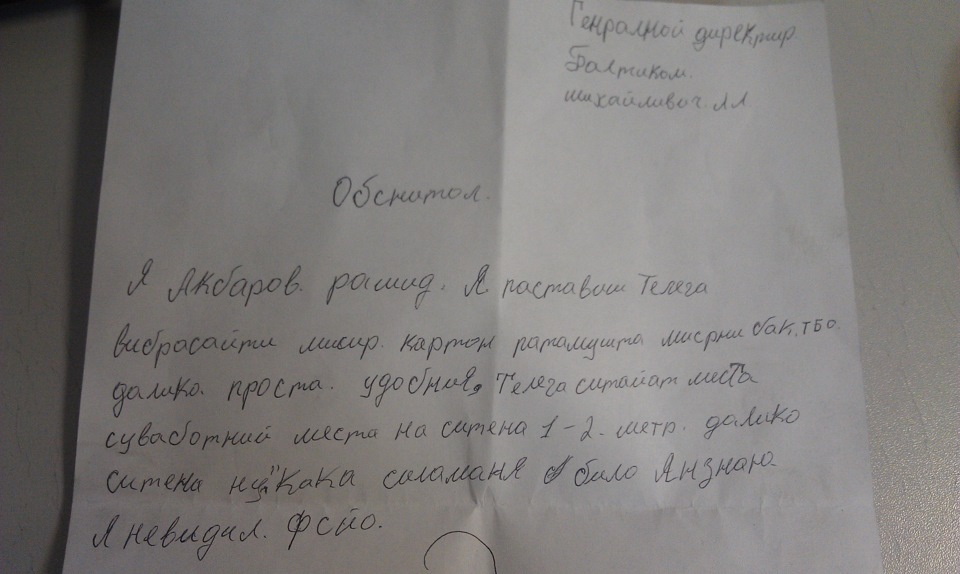 Генралной директир.
Балтиком.
михайливич. Л Л
Обснител.
Я Акбаров. рашид. Я паставиш Телега
вибрасайти мисир. картон патамушта мисрни бак. тбо.
далико. проста. удобния, Телега ситайат места
суваботний места на ситена 1-2. метр. далико
ситена ну Кака саламаня било Я нзнаю
Я невидил. фсйо.